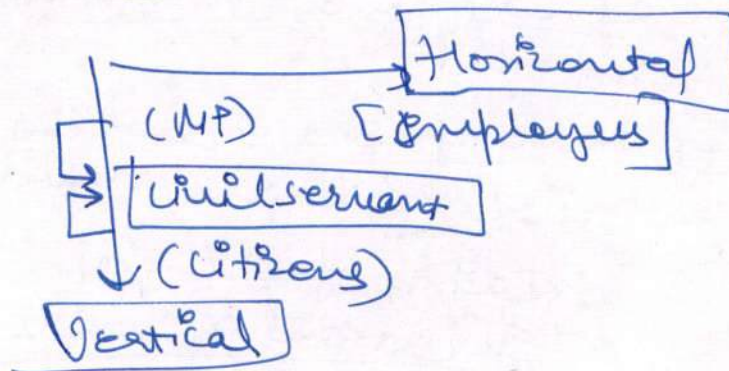 Horizontal
(MP) [Employees]
Civil servant
(Citizens)
Vertical